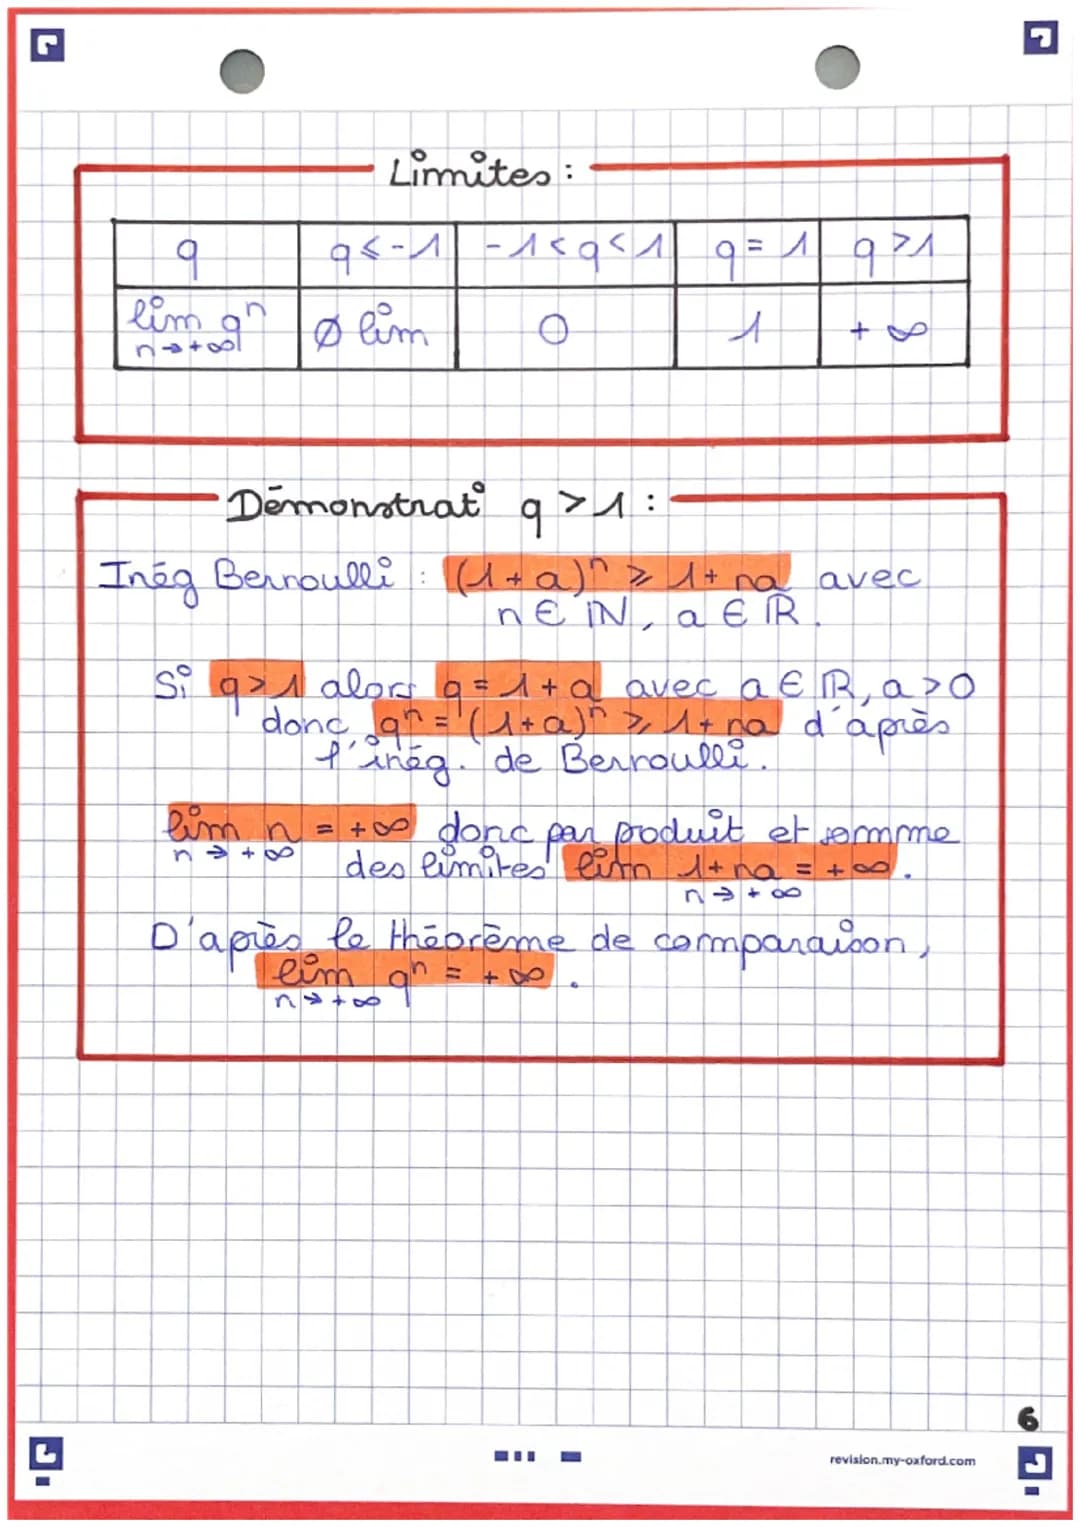 Limites :
q | q ⩽ -1 | -1 < q < 1 | q = 1 | q > 1
lim qⁿ | Ø lim | 0 | 1 | + ∞
n → +∞
Démonstrat° q > 1 :
Inég Bernoulli : (1 + a)ⁿ ⩾ 1 + na avec
n ∈ ℕ, a ∈ ℝ.
Si q > 1 alors q = 1 + a avec a ∈ ℝ, a > 0
donc qⁿ = (1 + a)ⁿ ⩾ 1 + na d'après
l'inég. de Bernoulli.
lim n = +∞ donc par produit et somme
n → +∞ des limites lim 1 + na = +∞.
n → +∞
D'après le théorème de comparaison,
lim qⁿ = +∞.
n → +∞
6
revision.my-oxford.com